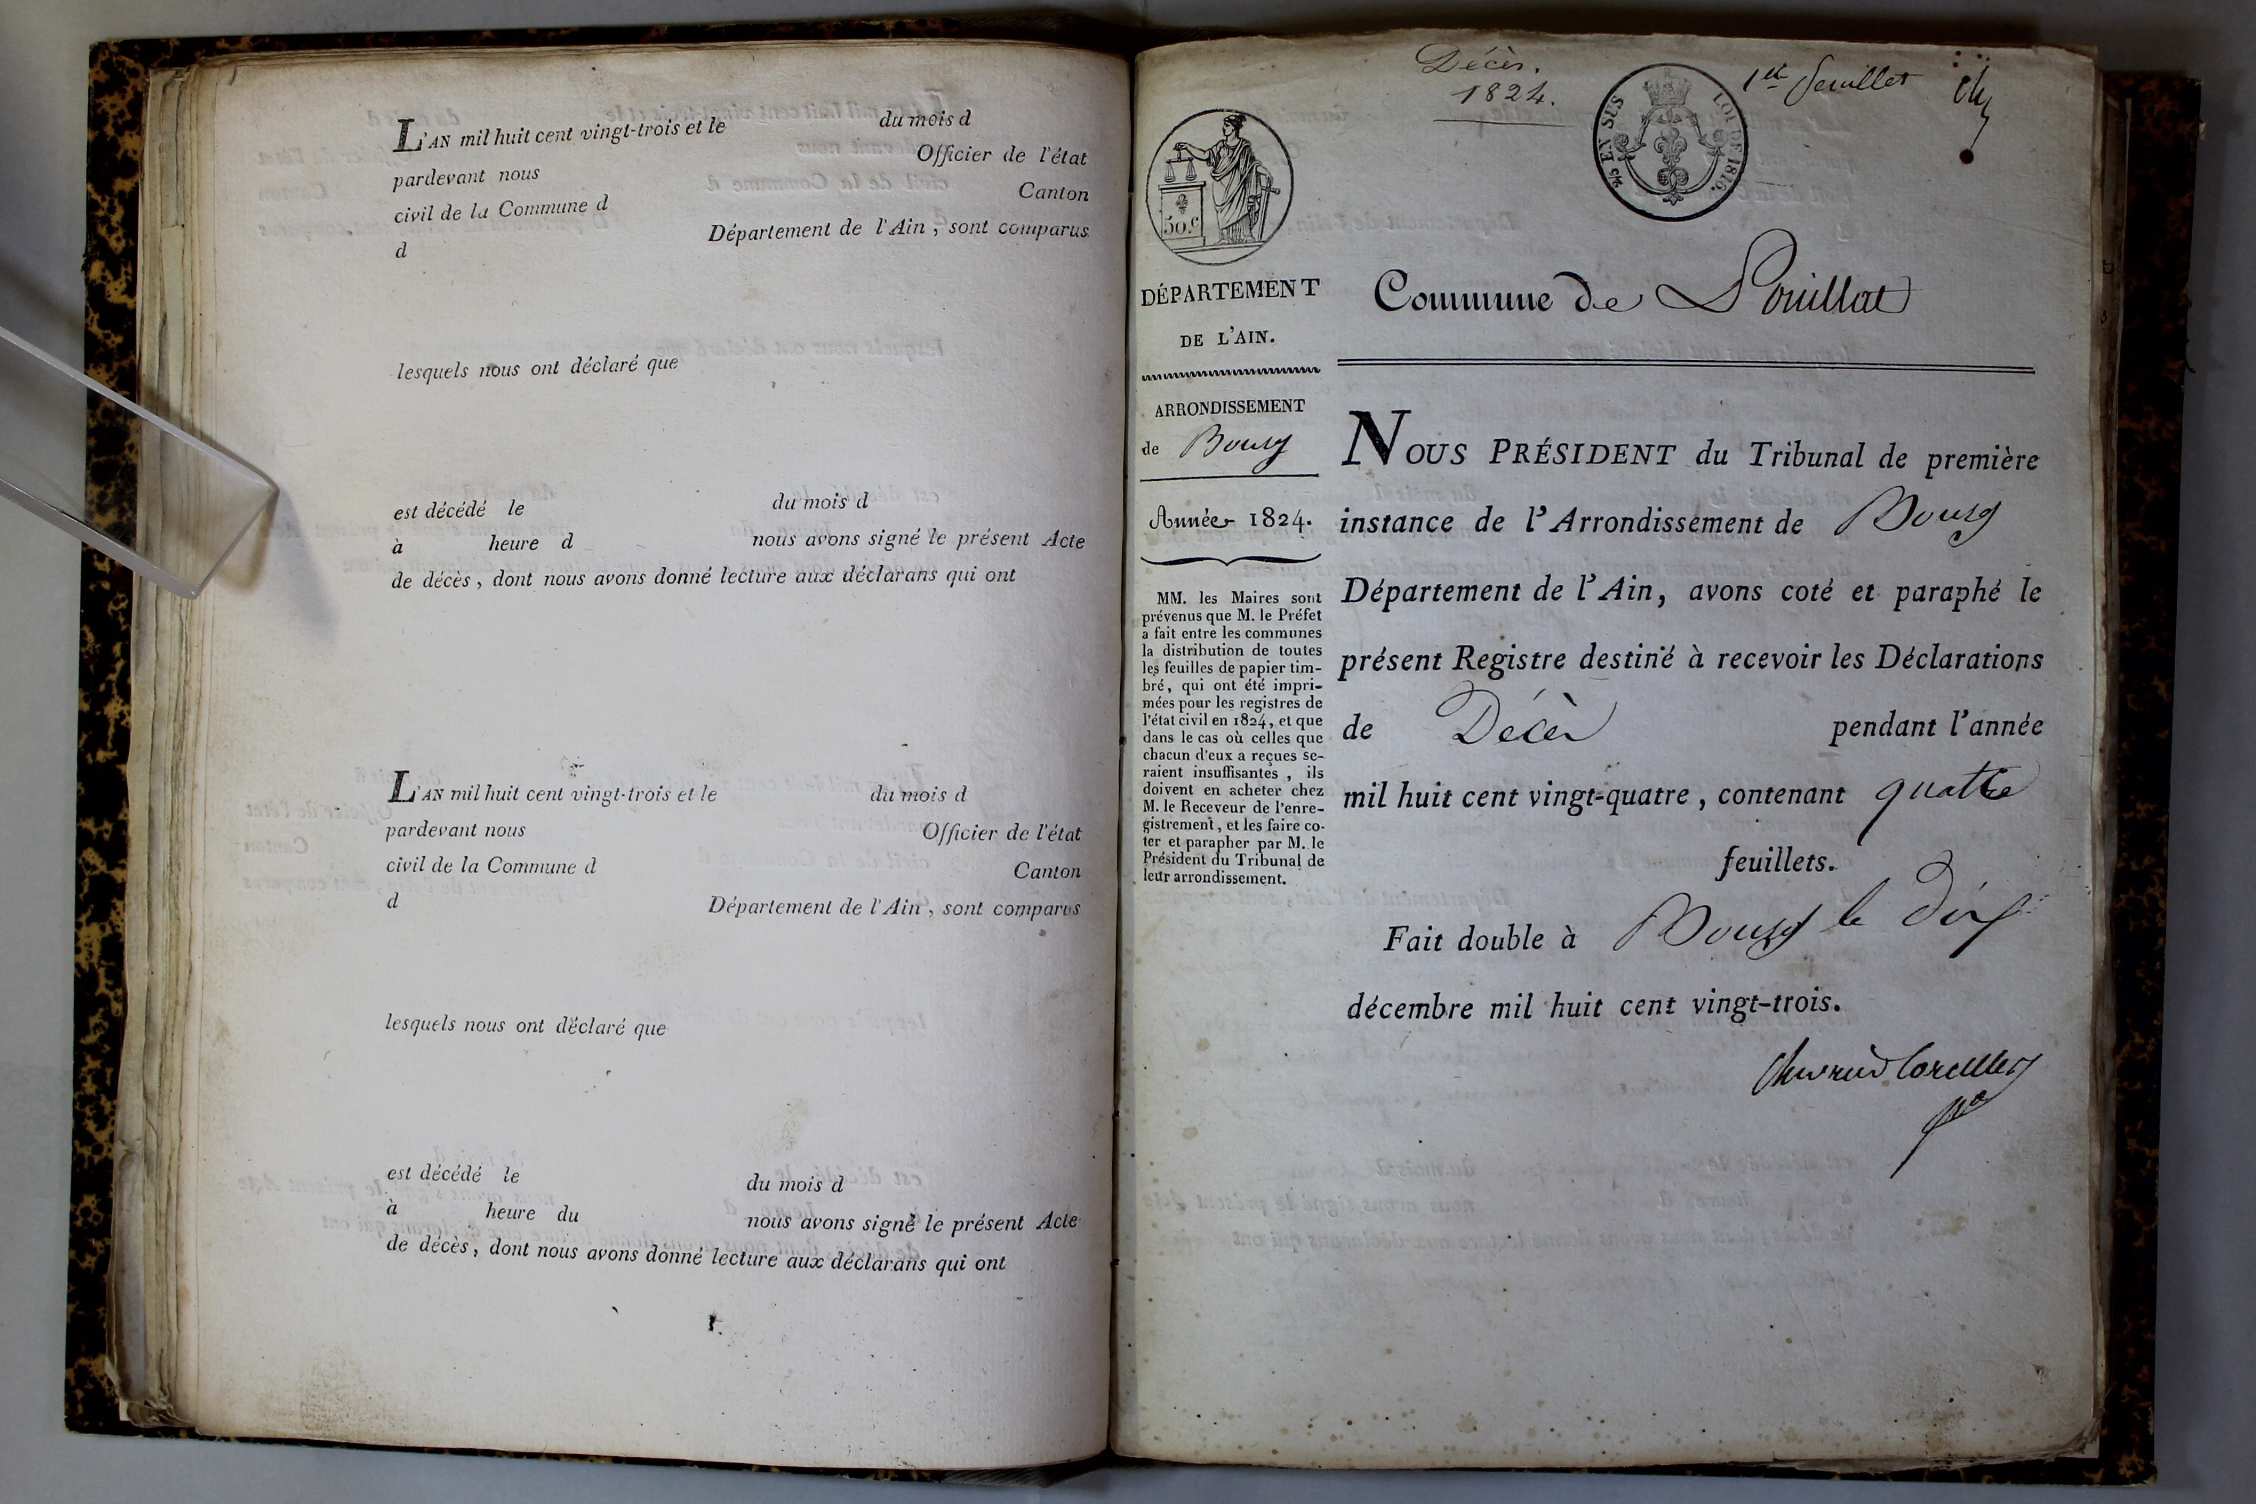 L'AN mil huit cent vingt-trois et le du mois d
pardevant nous Officier de l'état
civil de la Commune d Canton
d Département de l'Ain, sont comparus
lesquels nous ont déclaré que
est décédé le du mois d
à heure d nous avons signé le présent Acte
de décès, dont nous avons donné lecture aux déclarans qui ont
L'AN mil huit cent vingt-trois et le du mois d
pardevant nous Officier de l'état
civil de la Commune d Canton
d Département de l'Ain, sont comparus
lesquels nous ont déclaré que
est décédé le du mois d
à heure du nous avons signé le présent Acte
de décès, dont nous avons donné lecture aux déclarans qui ont
Décès.
1824.
1er feuillet
EN SUS LOI DE 1816.
50.c
DÉPARTEMENT
DE L'AIN.
ARRONDISSEMENT
de Bourg
Année 1824.
MM. les Maires sont
prévenus que M. le Préfet
a fait entre les communes
la distribution de toutes
les feuilles de papier tim-
bré, qui ont été impri-
mées pour les registres de
l'état civil en 1824, et que
dans le cas où celles que
chacun d'eux a reçues se-
raient insuffisantes, ils
doivent en acheter chez
M. le Receveur de l'enre-
gistrement, et les faire co-
ter et parapher par M. le
Président du Tribunal de
leur arrondissement.
Commune de Pouillat
NOUS PRÉSIDENT du Tribunal de première
instance de l'Arrondissement de Bourg
Département de l'Ain, avons coté et paraphé le
présent Registre destiné à recevoir les Déclarations
de Décès pendant l'année
mil huit cent vingt-quatre, contenant quatre
feuillets.
Fait double à Bourg le dix
décembre mil huit cent vingt-trois.